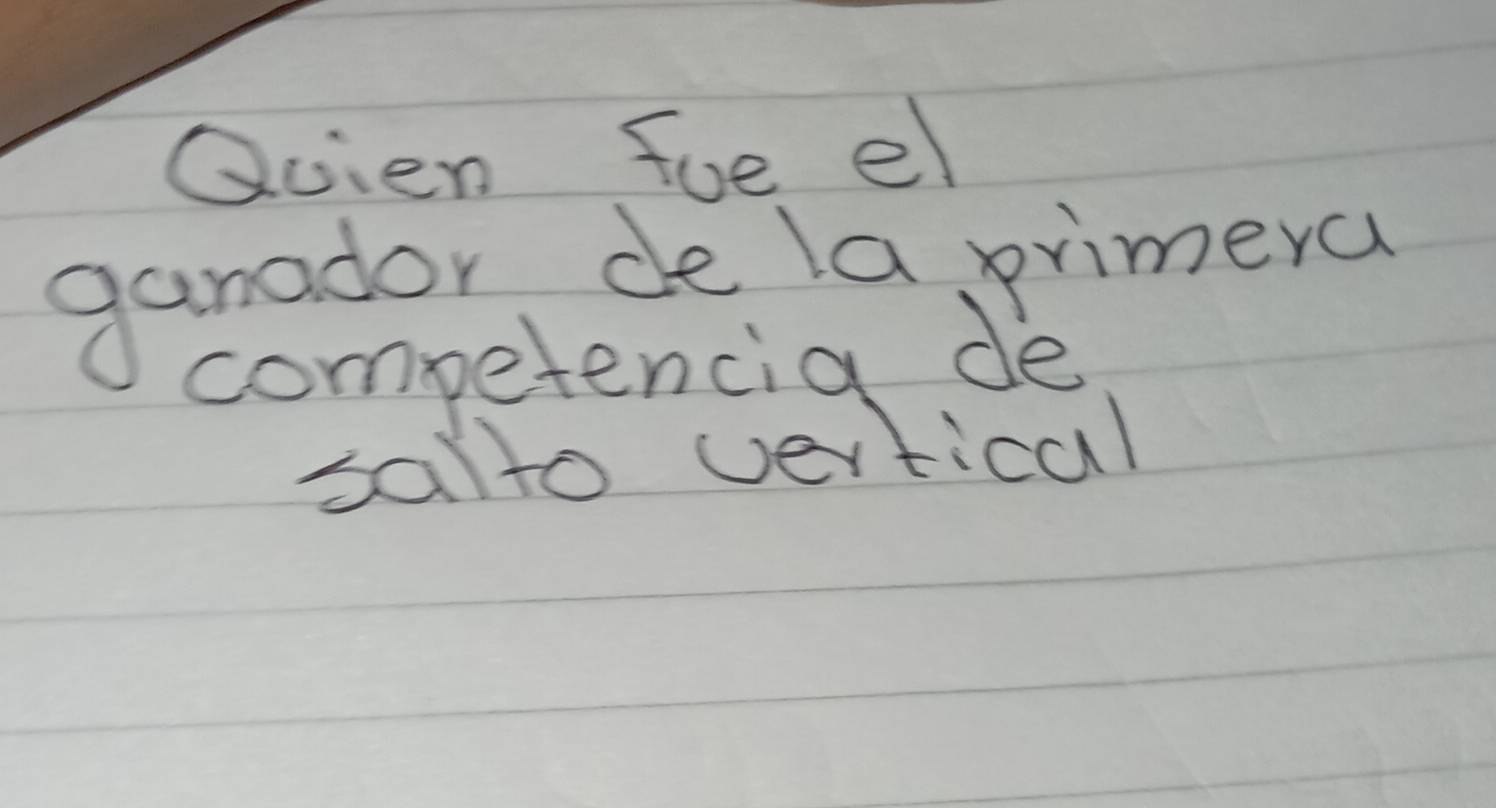 Quien fue el
ganador de la primera
competencia de
salto vertical